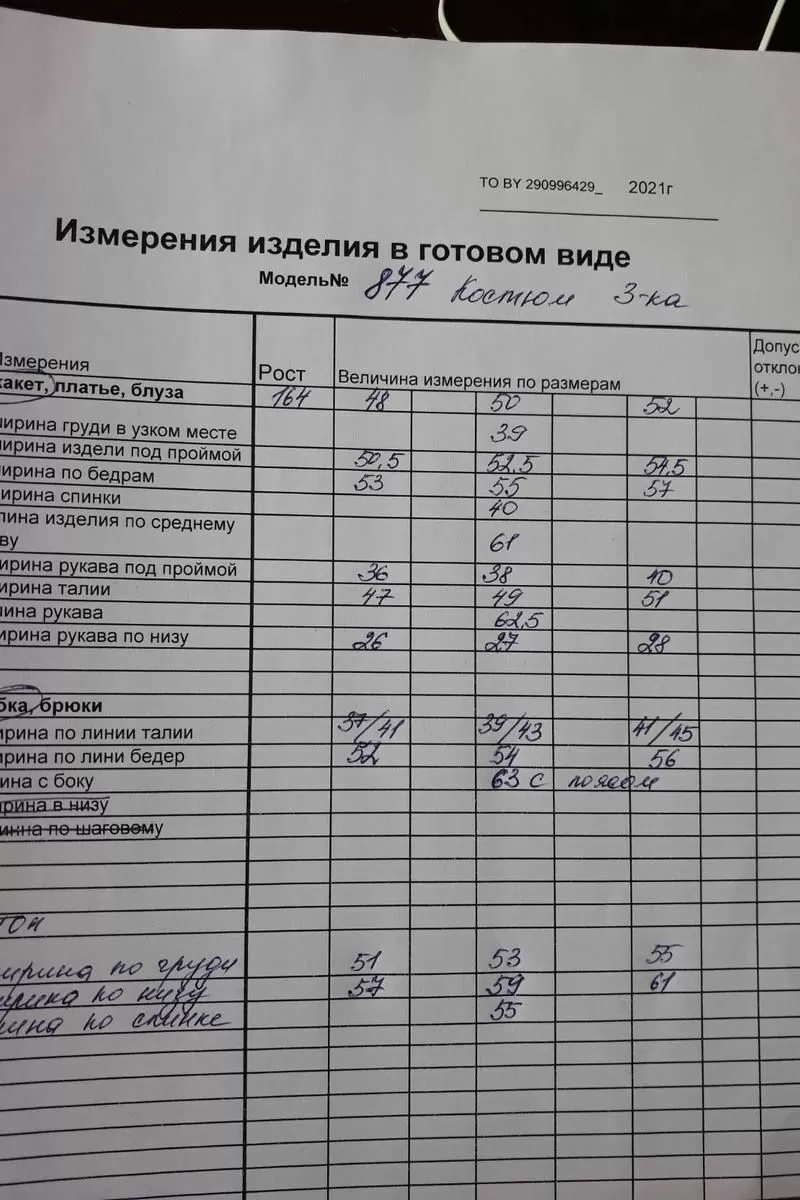 ТО BY 290996429_ 2021г
Измерения изделия в готовом виде
Модель№ 877 Костюм 3-ка
Измерения Рост Величина измерения по размерам Допус
откло
(+,-)
жакет, платье, блуза 164 48 50 52
ирина груди в узком месте 39
ирина издели под проймой 50,5 52,5 54,5
ирина по бедрам 53 55 57
ирина спинки 40
лина изделия по среднему
ву 61
ирина рукава под проймой 36 38 40
ирина талии 47 49 51
лина рукава 62,5
ирина рукава по низу 26 27 28
бка, брюки
ирина по линии талии 37/41 39/43 41/45
ирина по лини бедер 52 54 56
ина с боку 63 с поясом
ирина в низу
инна по шаговому
тон
ирина по груди 51 53 55
ирина по низу 57 59 61
ина по спинке 55